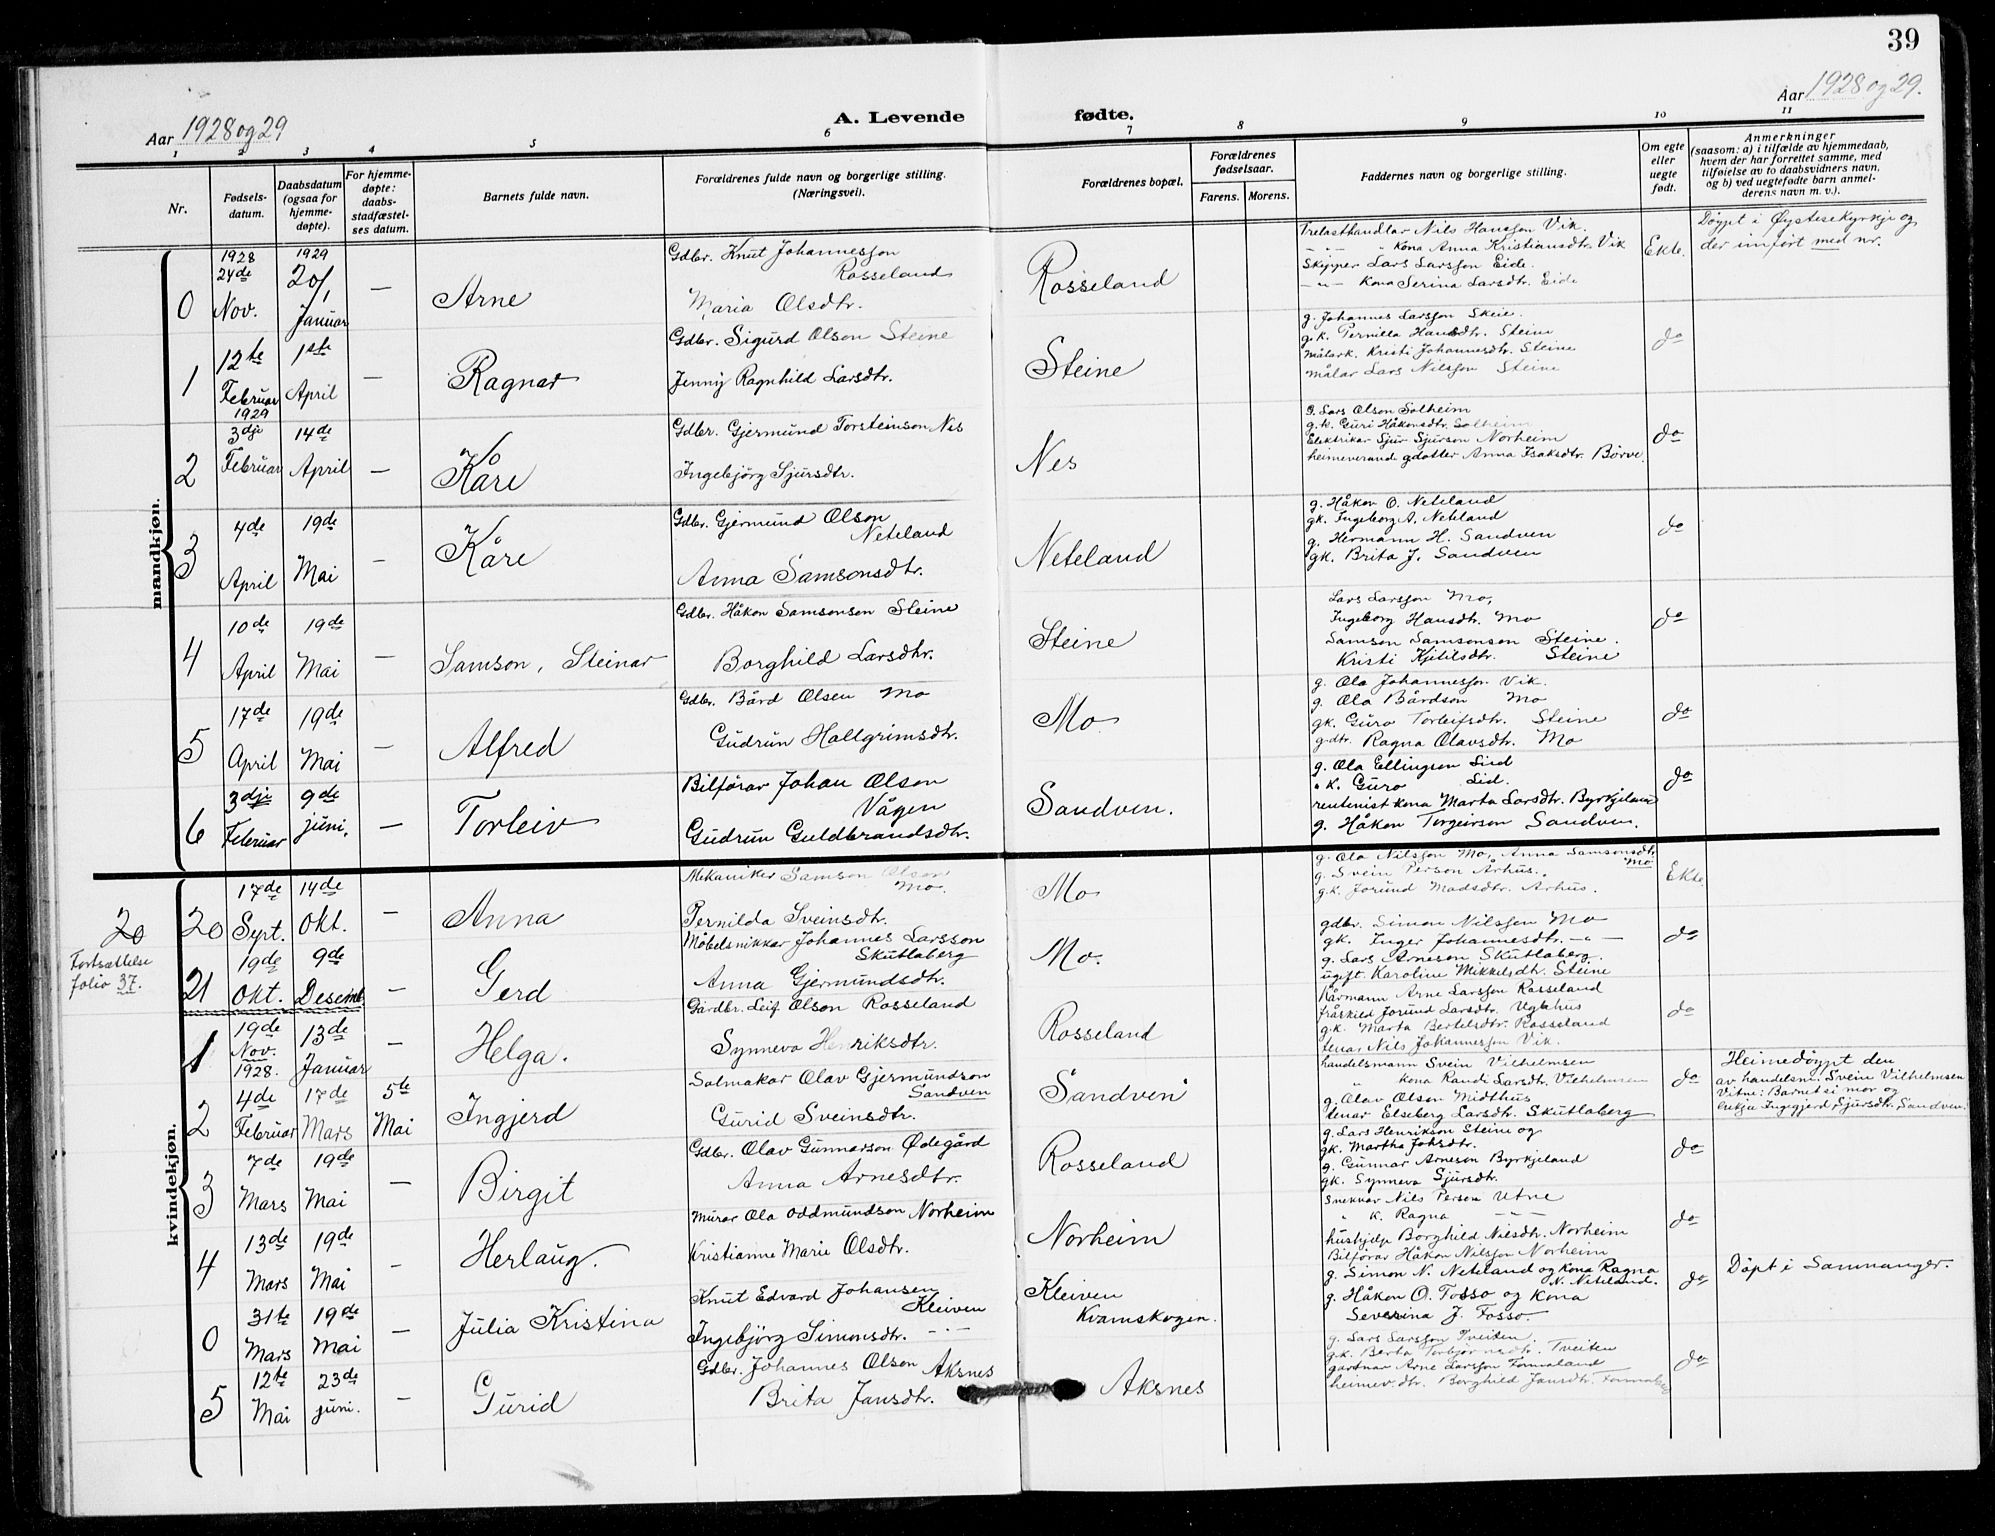 39
Aar 1928 og 29
A. Levende fødte.
Aar 1928 og 29.
1 2 3 4 5 6 7 8 9 10 11
Nr.
Fødselsdatum.
Daabsdatum (ogsaa for hjemmedøpte).
For hjemmedøpte: daabsstadfæstelses datum.
Barnets fulde navn.
Forældrenes fulde navn og borgerlige stilling. (Næringsvei).
Forældrenes bopæl.
Forældrenes fødselsaar.
Farens. Morens.
Faddernes navn og borgerlige stilling.
Om egte eller uegte født.
Anmerkninger
(saasom: a) i tilfælde av hjemmedaab,
hvem der har forrettet samme, med
tilføielse av to daabsvidners navn,
og b) ved uegtefødte barn anmelderens navn m. v.).
mandkjøn.
0 1928 24de Nov. 1929 20/1 Januar — Arne
Gdbr. Knut Johannesson Rosseland
Maria Olsdtr.
Rosseland
Trelasthandlar Nils Hansson Vik
— " — " Kona Anna Kristiansdtr. Vik
Skipper Lars Larsson Eide.
— " — Kona Serina Larsdtr. Eide
Ekte.
Døypt i Øystesekyrkje og
der innført med nr.
1 12te Februar 1929 1ste April — Ragnar
Gdbr. Sigurd Olson Steine
Jenny Ragnhild Larsdtr.
Steine
g. Johannes Larsson Skeie.
g.k. Pernilla Hansdtr. Steine
målark. Kristi Johannesdtr. Steine
målar Lars Nilsson Steine
do
2 3dje Februar 14de April — Kåre
Gdbr. Gjermund Torsteinson Nes
Ingebjörg Sjursdtr.
Nes
g. Lars Olson Solheim
g.k. Guri Håkonsdtr. Solheim
Elektrikar Sjur Sjurson Norheim
heimeverande gdotter Anna Isaksdtr. Börve.
do
3 4de April 19de Mai — Kåre
Gdbr. Gjermund Olson Neteland
Anna Samsonsdtr.
Neteland
g. Håkon O. Neteland
gk. Ingeborg A. Neteland
g. Hermann H. Sandven
gk. Brita J. Sandven
do
4 10de April 19de Mai — Samson, Steinar
Gdbr. Håkon Samsonson Steine
Borghild Larsdtr.
Steine
Lars Larsson Mo,
Ingeborg Hansdtr. Mo
Samson Samsonson Steine.
Kristi Kjetilsdtr. Steine
do
5 17de April 19de Mai — Alfred
Gdbr. Bård Olsen Mo
Gudrun Hallgrimsdtr.
Mo
g. Ola Johannesson Vik.
g. Ola Bårdson Mo
gk. Guro Torleifsdtr. Steine
g-dtr. Ragna Olavsdtr. Mo
do
6 3dje Februar 9de juni, — Torleiv
Bilförar Johan Olson Vågen
Gudrun Guldbrandsdtr.
Sandven.
g. Ola Ellingson Lid
" k. Guro Lid.
rentenist kona Marta Larsdtr. Byrkjeland
g. Håkon Torgeirson Sandven.
do
kvindekjøn.
20
Fortsættelse
folio 37.
20 17de Sept. 14de Okt. — Anna
Mekaniker Samson Olson Mo.
Pernilda Sveinsdtr.
Mo
g. Ola Nilsson Mo, Anna Samsonsdtr. Mo
g. Svein Person Århus.
g.k. Jorund Madsdtr. Århus.
Ekte
21 19de Okt. 9de Desemb. — Gerd
Möbelsnikkar Johannes Larsson Skutlaberg
Anna Gjermundsdtr.
Mo.
gdbr. Simon Nilsson Mo
gk. Inger Johannesdtr. — " —
g. Lars Arneson Skutlaberg.
ugift. Karoline Mikkelsdtr. Steine
do
1 19de Nov. 1928. 13de Januar — Helga.
Gardbr. Leif Olson Rosseland
Synneva Henriksdtr.
Rosseland
Kårmann Arne Larsson Rosseland
fråskild Jorund Larsdtr. Ugahus
g.k. Marta Bertelsdtr. Rosseland
tenar Nils Johannesson Vik.
do
2 4de Februar 17de Mars 5te Mai Ingjerd
Salmakar Olav Gjermundson Sandven
Gurid Sveinsdtr.
Sandven
handelsmann Svein Vilhelmsen
" kona Randi Larsdtr. Vilhelmsen
g. Olav Olson Midthus
tenar Elseberg Larsdtr. Skutlaberg
do
Heimedøypt den
av handelsm. Svein Vilhelmsen
Vitne: Barnets mor og
enkja Ingegjerd Sjursdtr. Sandven.
3 7de Mars 19de Mai — Birgit
Gdbr. Olav Gunnarson Ødegård
Anna Arnesdtr.
Rosseland
g. Lars Henrikson Steine og
gk. Martha Johsdtr.
g. Gunnar Arneson Byrkjeland
gk. Synneva Sjursdtr.
do
4 13de Mars 19de Mai — Herlaug.
Murar Ola Oddmundson Norheim
Kristianne Marie Olsdtr.
Norheim
Snekkar Nils Person Utne
" k. Ragna — " —
hushjelp Borghild Nilsdtr. Norheim
Bilförar Håkon Nilsson Norheim
do
0 31te Mars 19de Mai — Julia Kristina
Knut Edvard Johansen Kleiven
Ingebjörg Simonsdtr. — " —
Kleiven
Kvamskogen.
g. Simon N. Neteland og kona Ragna N. Neteland.
g. Håkon O. Tosso og Kona
Severina J. Fosso.
do
Döpt i Samnanger.
5 12te Mai 23de juni. — Gurid
Gdbr. Johannes Olson Aksnes
Brita Jansdtr.
Aksnes
g. Lars Larsson Tveiten.
g.k. Berta Torbjörnsdtr. Tveiten
gartnar Arne Larsson Tommaland
heimev. dtr. Borghild Jansdtr.
do